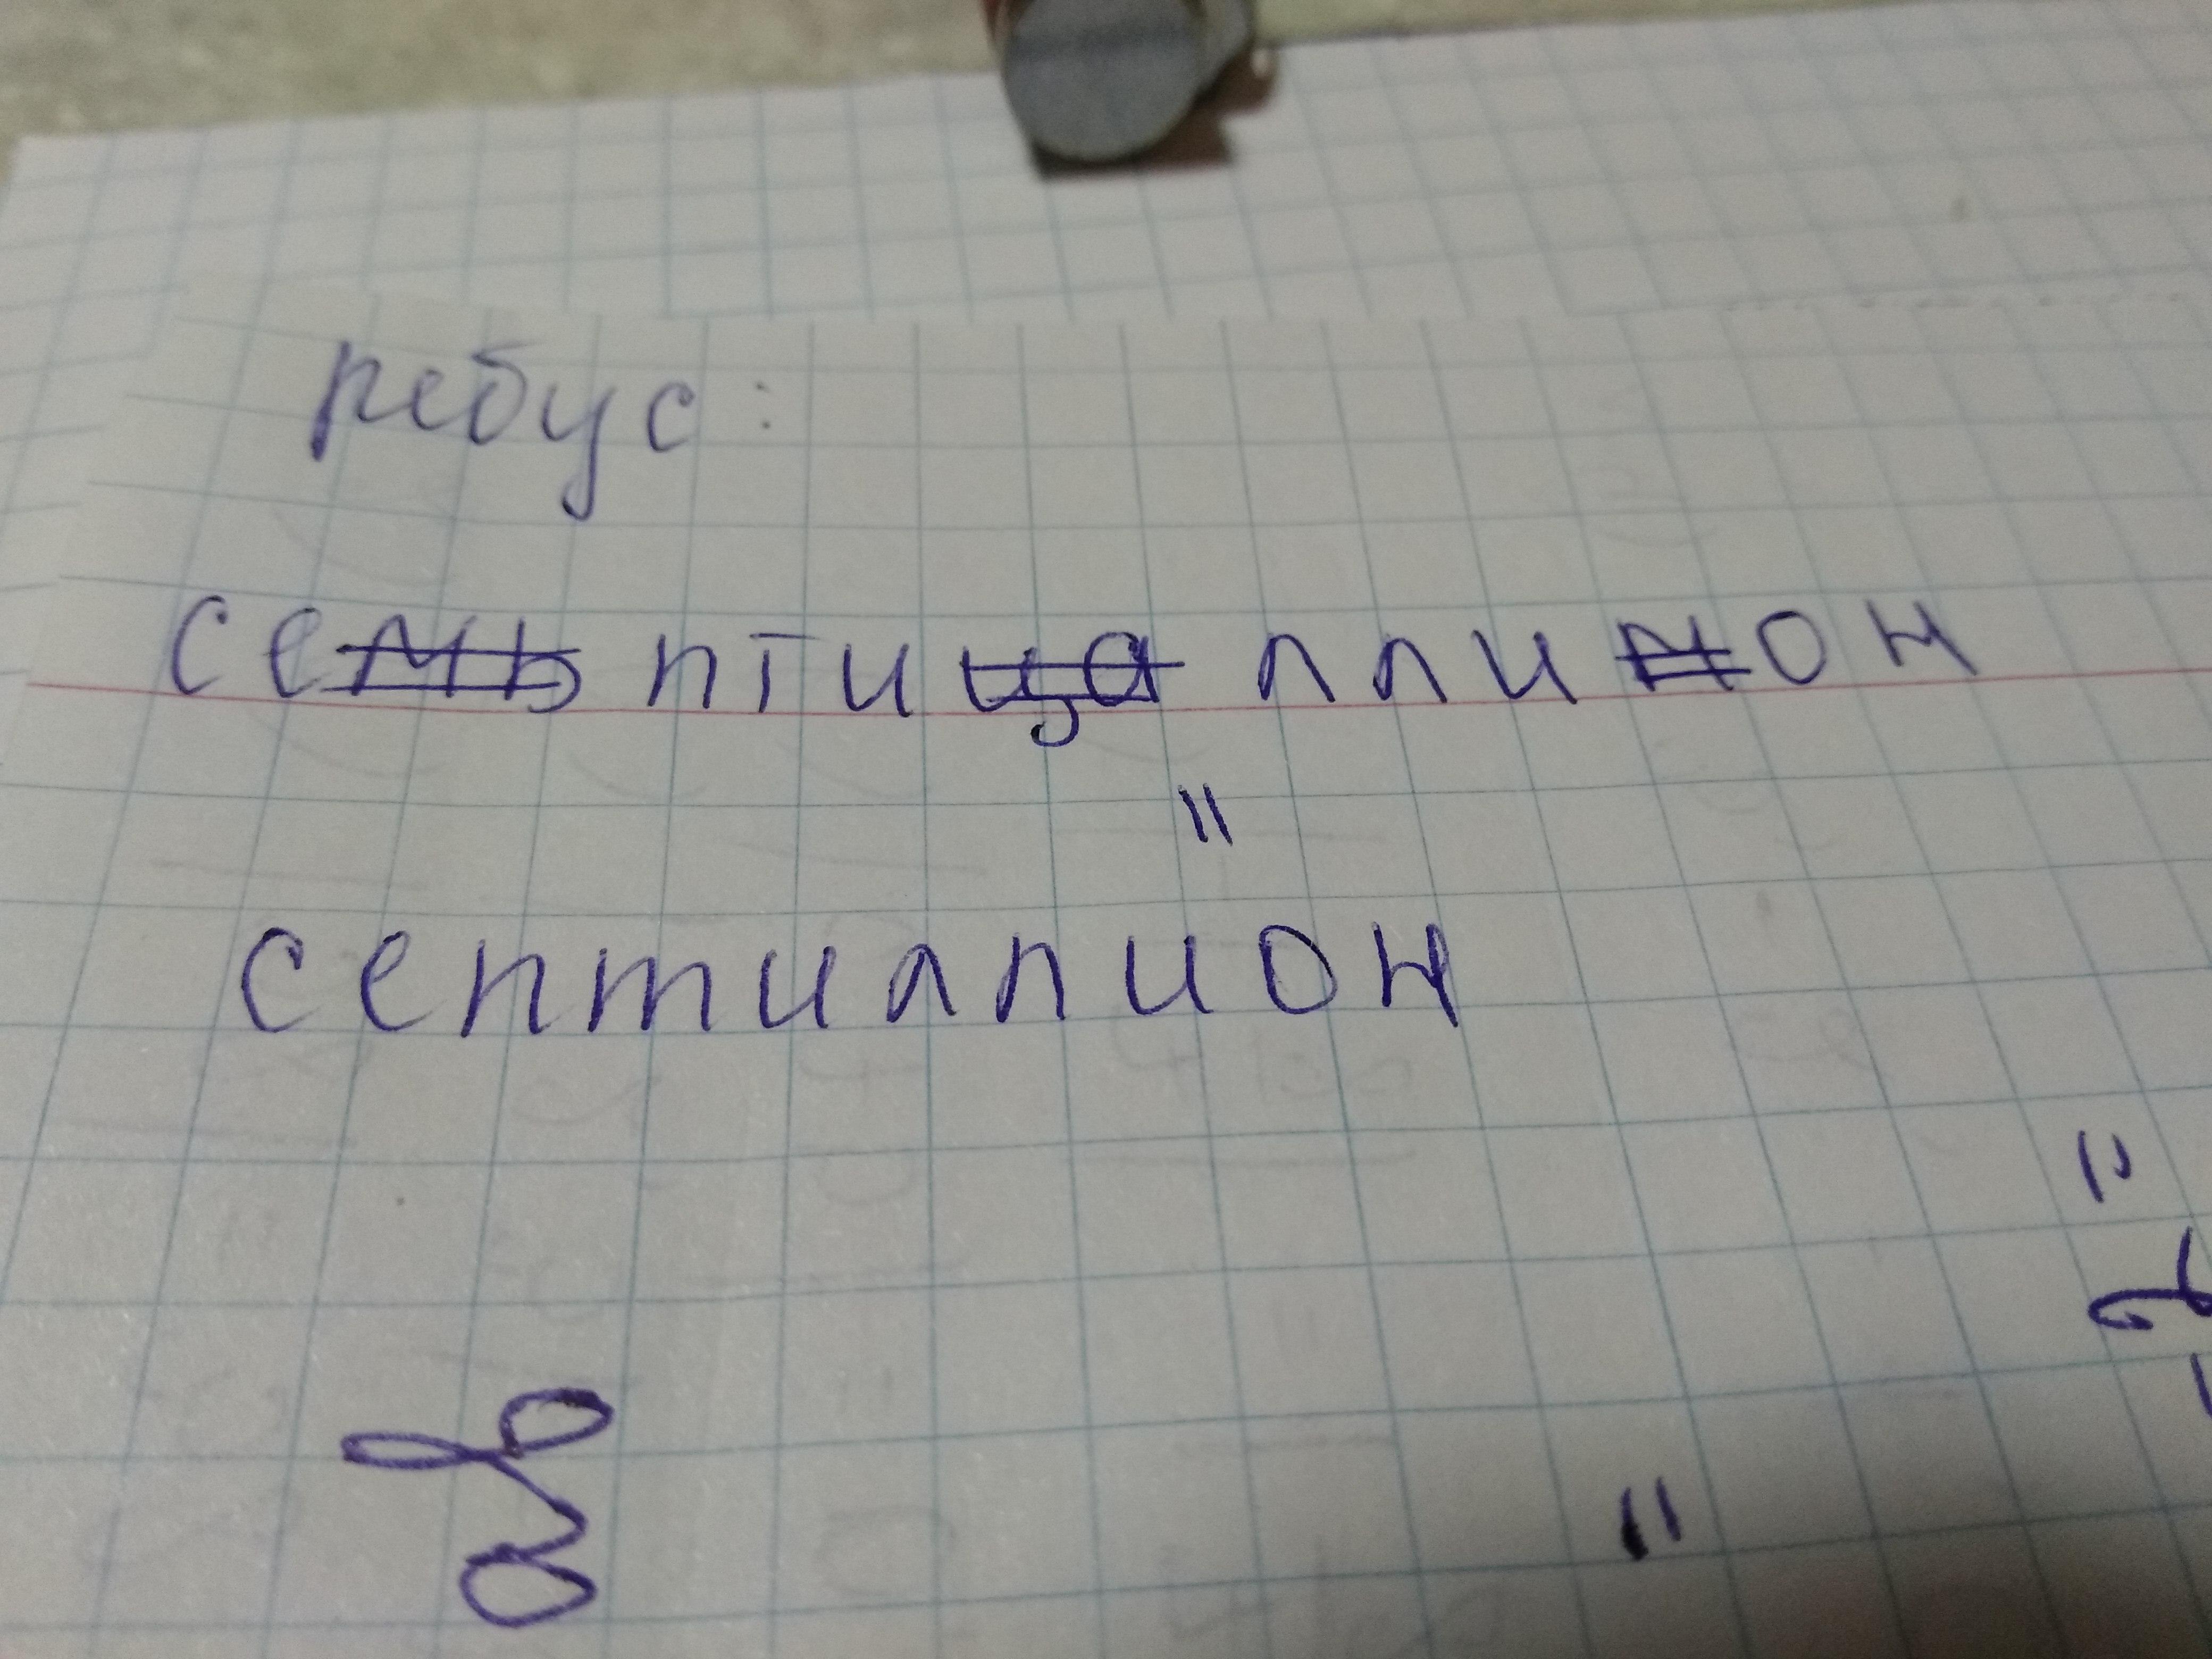 ребус:
семь птица ллимон
"
септиллион
"
"